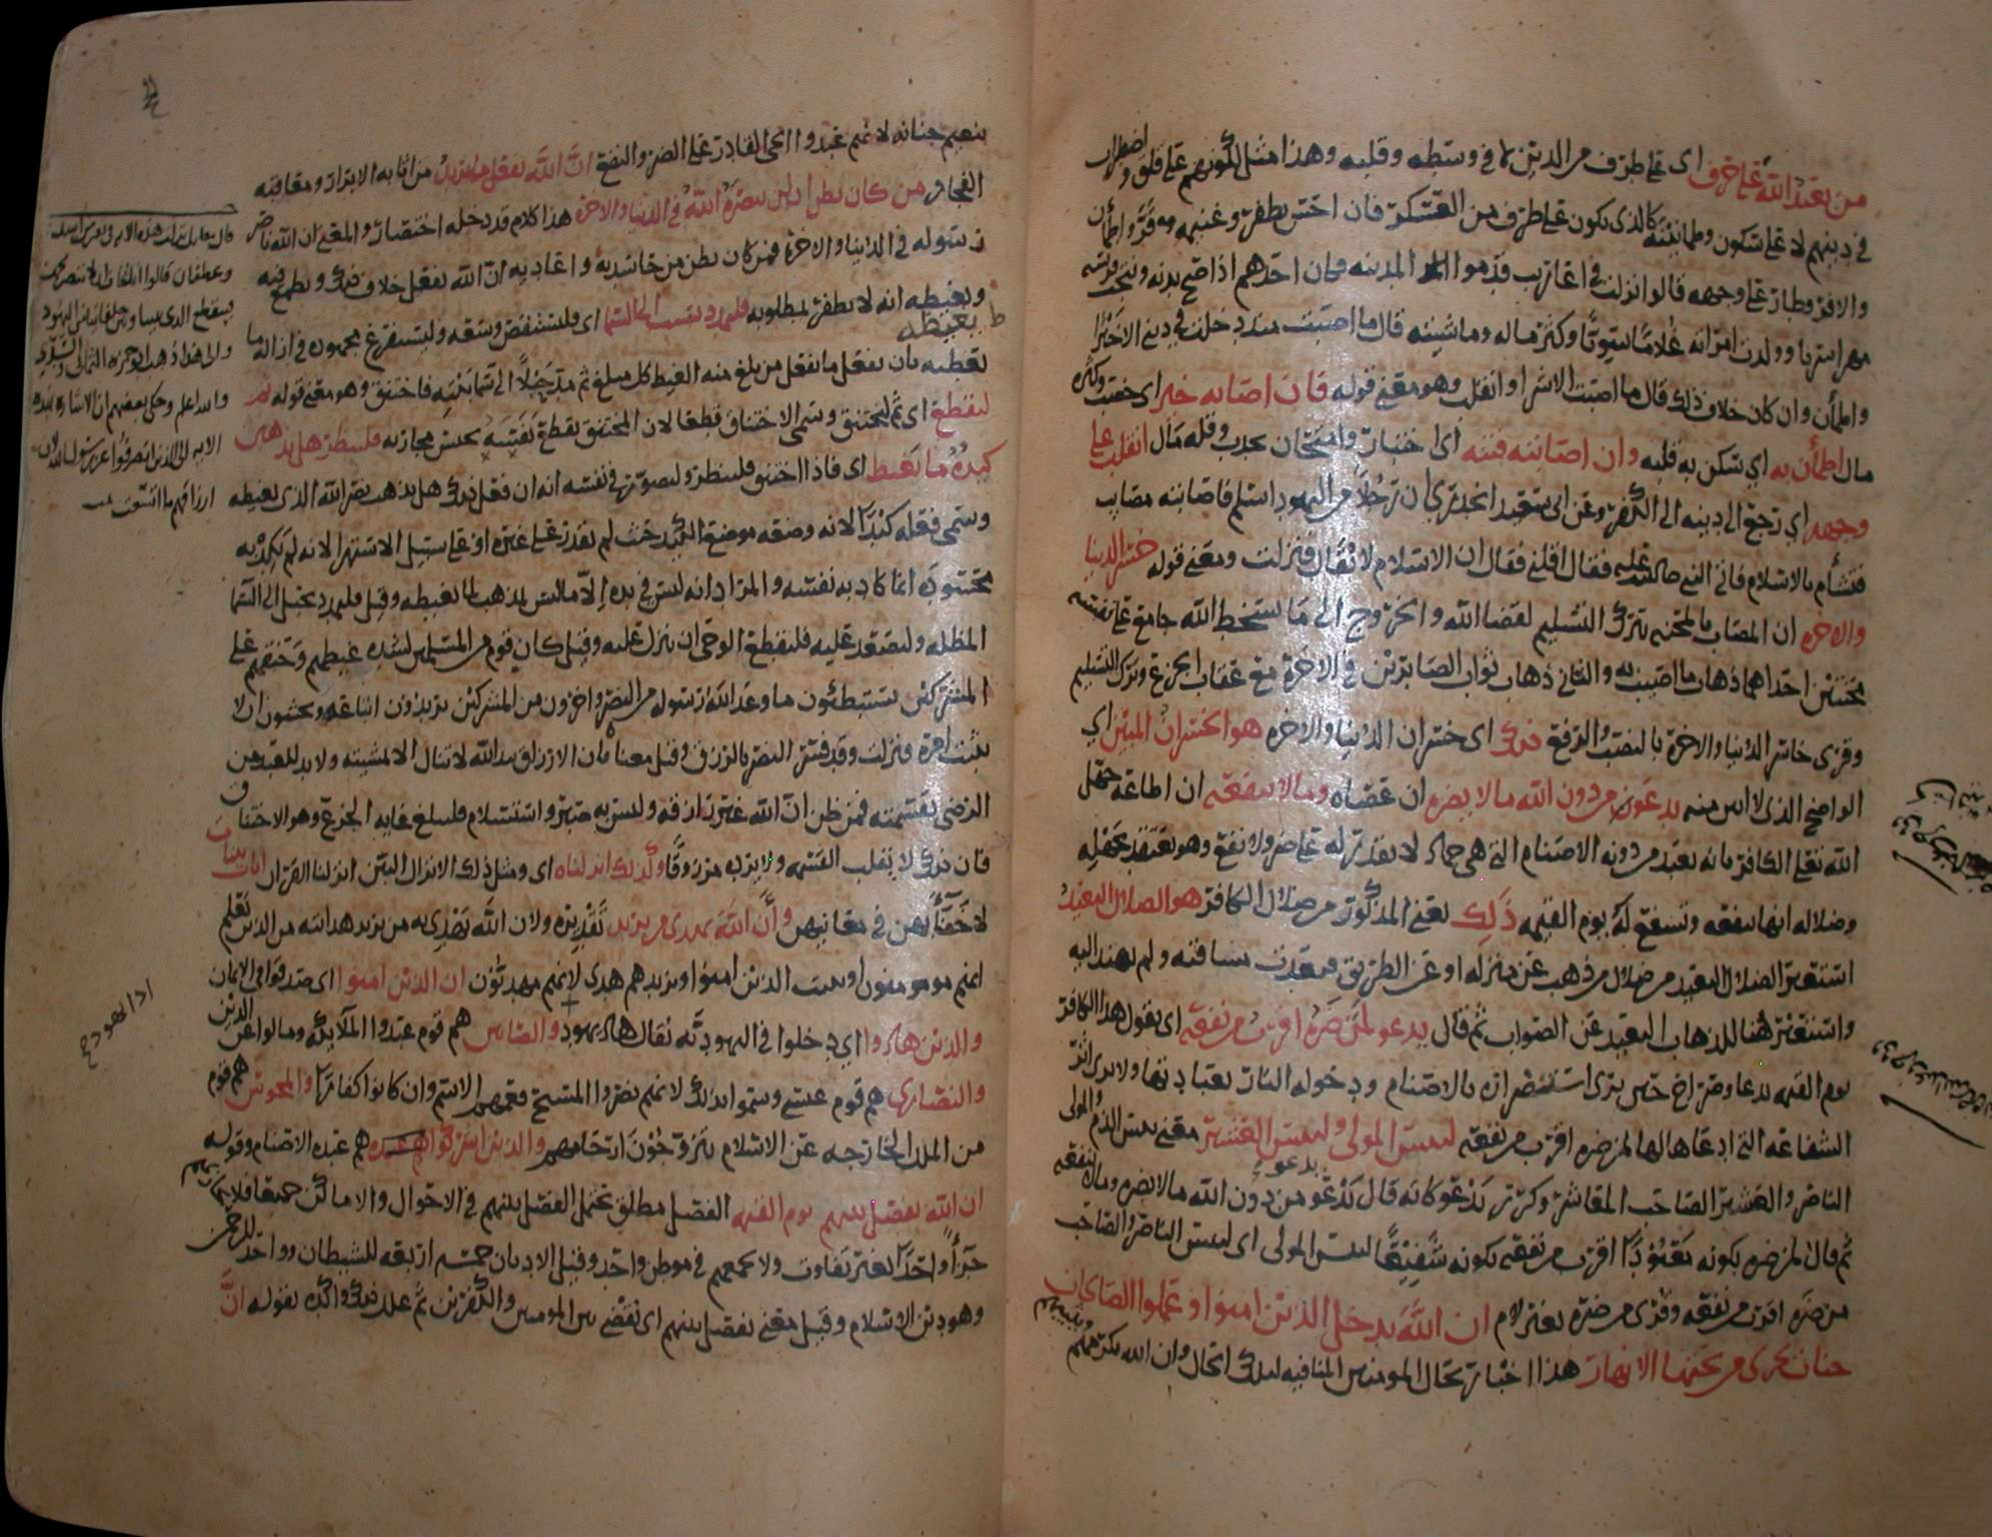 من يعبد الله على حرف اى على طرف من الدين لا في وسطه وقلبه وهذا مثل لكونهم على قلق واضطراب
في دينهم لا على سكون وطمانينة كالذى يكون على طرف من العسكر فان احس بظفر وغنيمه قر واطمأن
والا فر وطار على وجهه قالوا نزلت في اعاريب قدموا المدينه وكان احدهم اذا صح بدنه ونتجت فرسه
مهرا سريا وولدت امراته غلاما سويا وكثر ماله وماشيته قال ما اصبت منذ دخلت في ديني الا خيرا
واطمأن وان كان خلاف ذلك قال ما اصبت الا شرا وانقلب وهو معنى قوله فان اصابه خير اى خصب وكثره
مال اطمأن به اي سكن به قلبه وان اصابته فتنه اى اختبار وامتحان بجدب وقله مال انقلب على
وجهه اي رجع الى دينه الى الكفر وعن ابى سعيد الخدري ان رجلا من اليهود اسلم فاصابته مصايب
فتشأم بالاسلام فاتى النبي صلى الله عليه فقال اقلني فقال ان الاسلام لا يقال فنزلت ومعنى قوله خسر الدنيا
والاخره ان المصاب بالمحنه بترك التسليم لقضا الله والخروج الى ما يسخط الله جامع على نفسه
محنتين احداهما ذهاب ما اصيب به والثاني ذهاب ثواب الصابرين في الاخرة مع عقاب الجزع وترك التسليم
وقرى خاسر الدنيا والاخرة بالنصب والرفع ذلك اى خسران الدنيا والاخره هو الخسران المبين اي
الواضح الذى لا لبس فيه يدعو من دون الله ما لا يضره ان عصاه وما لا ينفعه ان اطاعه جهل
الله تعلى الكافر بانه يعبد من دونه الاصنام التي هي جماد لا يقدر له على ضر ولا نفع وهو يعتقد بجهله
وضلاله انها تنفعه وتشفع له يوم القيمه ذلك يعني المذكور من ضلال الكافر هو الضلال البعيد
استعير الضلال البعيد من ضلال من ذهب عن منزله او عن الطريق فبعدت مسافته ولم يهتد اليه
واستعير هنا للذهاب البعيد عن الصواب ثم قال يدعو لمن ضره اقرب من نفعه اى يقول هذا الكافر
يوم القيمه بدعا وصراخ حين يرى استضراره بالاصنام ودخوله النار بعبادتها ولا يرى اثر
الشفاعه التي ادعاها لها لمن ضره اقرب من نفعه لبئس المولى ولبئس العشير معنى بئس الذم والمولى
الناصر والعشير الصاحب المعاشر وكرر يدعو كانه قال يدعو يدعو من دون الله ما لا يضره وما لا ينفعه
ثم قال لمن ضره بكونه معبودا اقرب من نفعه بكونه شفيعا لبئس المولى اى لبئس الناصر والصاحب
من ضره اقرب من نفعه وقرى من ضره بغير لام ان الله يدخل الذين امنوا وعملوا الصالحات
جنات تجرى من تحتها الانهار هذا اخبار بحال المومنين المنافيه لتلك الحال وان الله يكرمهم
بنعيم جنانه لانهم عبدوا الحى القادر على الضر والنفع ان الله يفعل ما يريد من اثابه الابرار ومعاقبه
الفجار من كان يظن ان لن ينصره الله في الدنيا والاخره هذا كلام قد دخله اختصار والمعنى ان الله ناصر
رسوله في الدنيا والاخرة فمن كان يظن من حاسديه واعاديه ان الله يفعل خلاف ذلك ويطمع فيه
ويغيظه انه لا يظفر بمطلوبه فليمدد بسبب الى السما اى فليستقص وسعه وليستفرغ مجهوده في ازاله ما
يغيظه بان يفعل ما يفعل من بلغ منه الغيظ كل مبلغ ثم مد حبلا الى سما بيته فاختنق وهو معنى قوله ثم
ليقطع اى ثم ليختنق وسمى الاختناق قطعا لان المختنق يقطع نفسه بحبس مجاريه فلينظر هل يذهبن
كيده ما يغيظ اى فاذا اختنق فلينظر وليصور في نفسه انه ان فعل ذلك هل يذهب نصر الله الذى يغيظه
وسمى فعله كيدا لانه وضعه موضع الكيد حيث لم يقدر على غيره او على سبيل الاستهزا لانه لم يكد به
محسوده انما كاد به نفسه والمراد انه ليس في يده الا ما ليس بمذهب لما يغيظه وقيل فليمدد بحبل الى السما
المظله وليصعد عليه فليقطع الوحى ان ينزل عليه وقيل كان قوم من المسلمين لشده غيظهم وحنقهم على
المشركين يستبطئون ما وعد الله رسوله من النصر واخرون من المشركين يريدون اتباعه ويخشون ان لا
يثبت امره فنزلت وقد فسر النصر بالرزق وقيل معناه بان الارزاق بيد الله لا تنال الا بمشيته ولا بد للعبد من
الرضى بقسمته فمن ظن ان الله غير رازقه وليس به صبر واستسلام فليبلغ غايه الجزع وهو الاختناق
فان ذلك لا يقلب القسمه ولا يرده مرزوقا وكذلك انزلناه اى ومثل ذلك الانزال البين انزلنا القران ايات بينات
لا خفآء بهن في معانيهن وأن الله يهدى من يريد تقديره ولان الله يهدى به من يريد هدايته من الذين يعلم
انهم يومنون او يثبت الذين امنوا ويزيدهم هدى لانهم مهتدون ان الذين امنوا اى صدقوا في الايمان
والذين هادوا اي دخلوا في اليهوديه يقال هاد يهود والصابين هم قوم عبدوا الملايكه ومالوا عن الدين
والنصارى هم قوم عيسى وسموا بذلك لانهم نصروا المسيح فعمهم الاسم وان كانوا كفارا والمجوس هم قوم
من الملل الخارجه عن الاسلام يتزوجون ارحامهم والذين اشركوا هم عبده الاصنام وقوله
ان الله يفصل بينهم يوم القيمه الفصل مطلق يحتمل الفصل بينهم في الاحوال والاماكن جميعا فلا يجازيهم
جزآء واحدا بغير تفاوت ولا يجمعهم في موطن واحد وقيل الاديان خمسه اربعه للشيطان وواحد للرحمن
وهو دين الاسلام وقيل معنى يفصل بينهم اى يقضى بين المومنين والكافرين ثم علل ذلك واكده بقوله انَّ